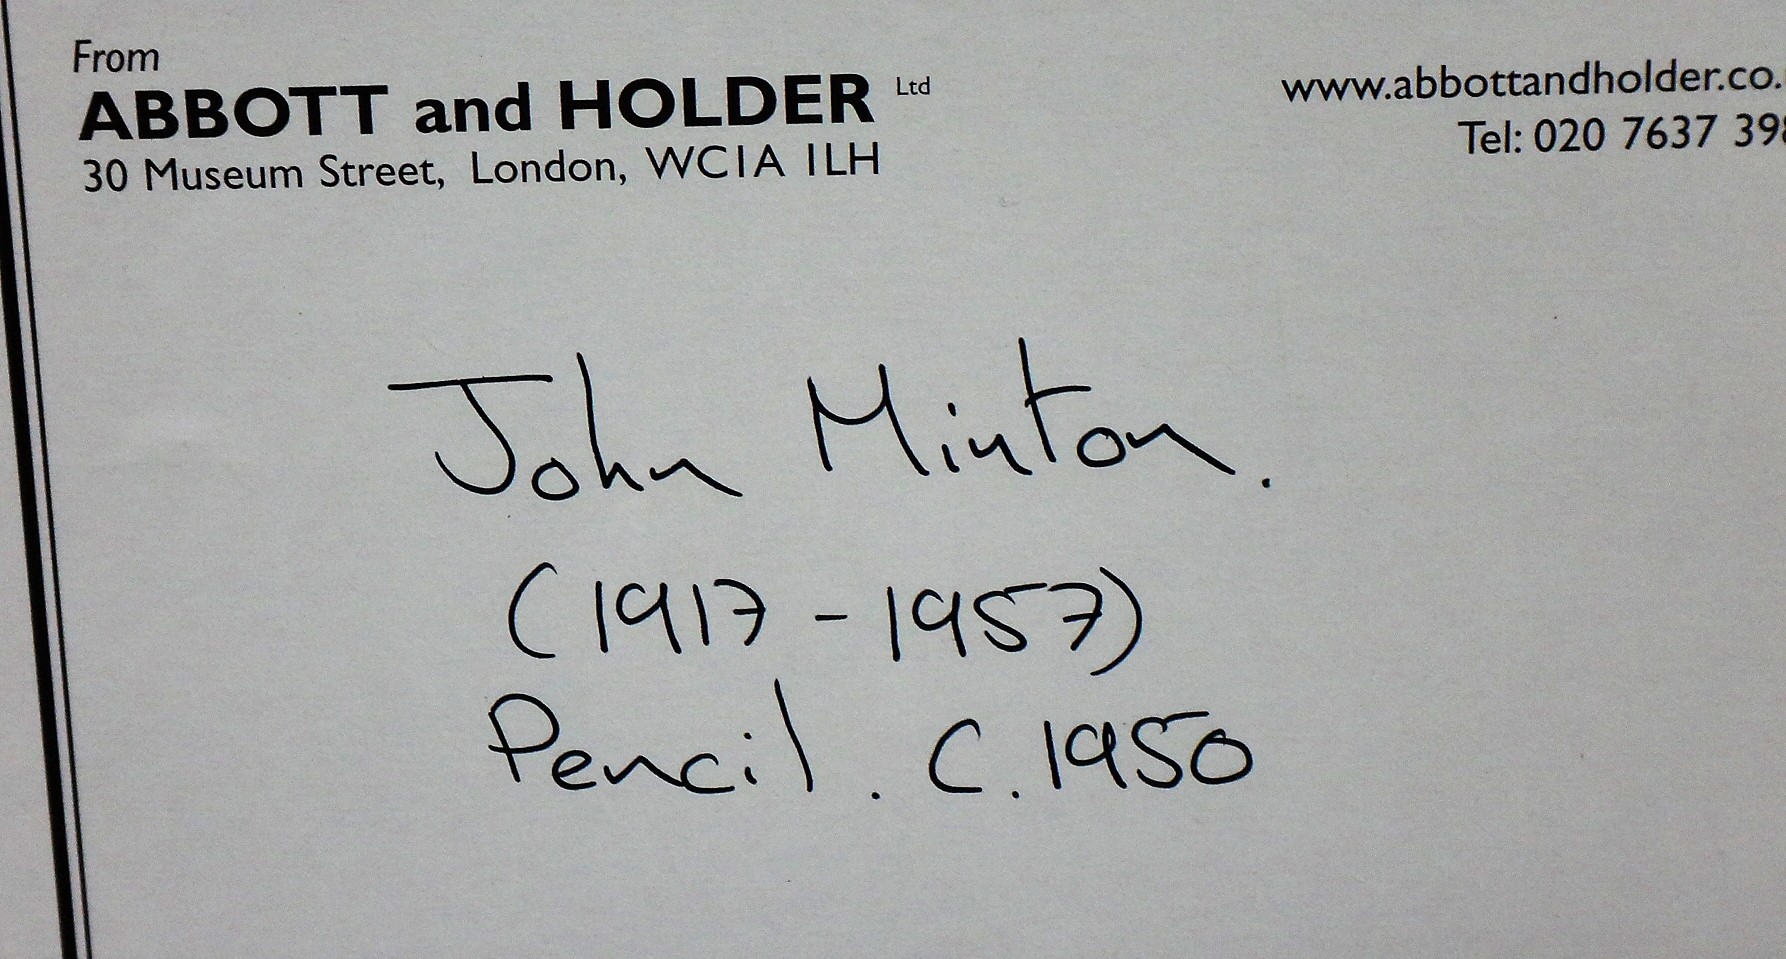 From
ABBOTT and HOLDER Ltd
30 Museum Street, London, WC1A 1LH
www.abbottandholder.co.
Tel: 020 7637 398
John Minton.
(1917 - 1957)
Pencil. C. 1950